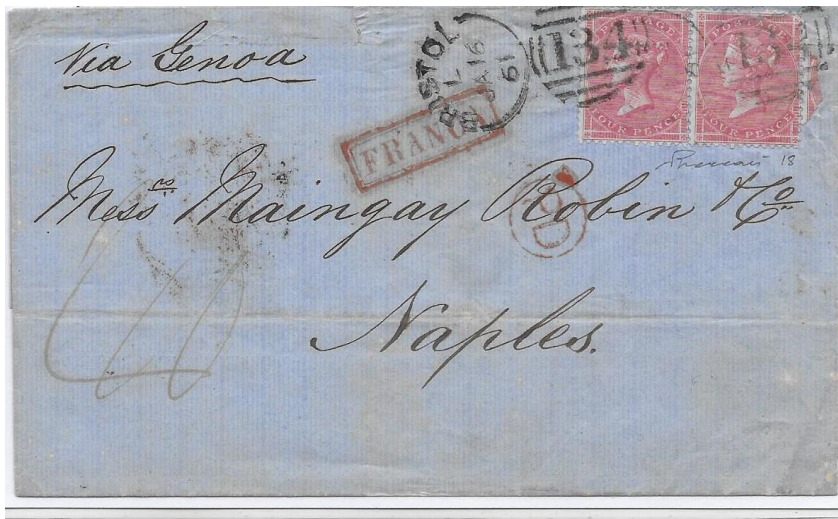 Via Genoa
BRISTOL
L
JA 16
61
134
POSTAGE
FOUR PENCE
POSTAGE
134
FOUR PENCE
FRANCA
18
PD
Messrs Maingay Robin & Co
Naples.